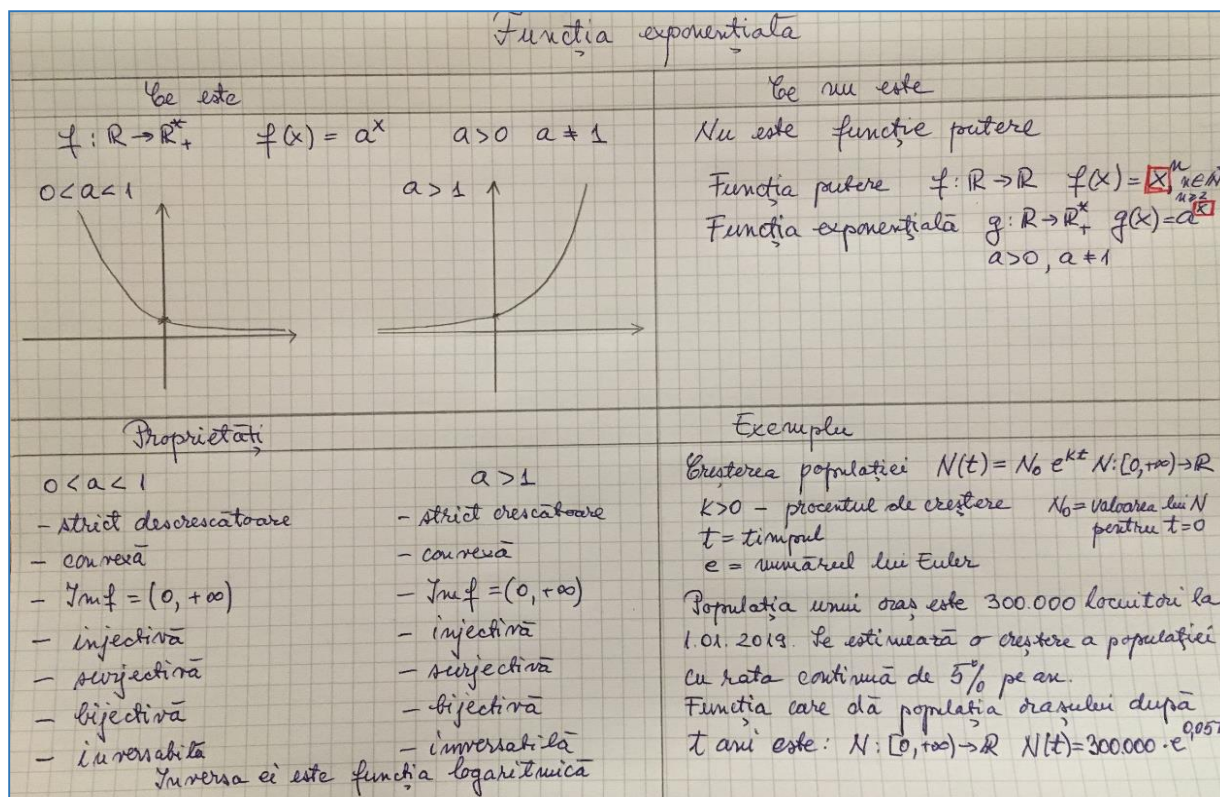 Funcția exponențiala
Ce este
f : R → R*₊   f(x) = aˣ   a>0  a ≠ 1
0 < a < 1
a > 1
Ce nu este
Nu este funcție putere
Funcția putere  f : R → R  f(x) = xⁿ, n∈N
n≥2
Funcția exponențială  g : R → R*₊  g(x) = aˣ
a>0, a ≠ 1
Proprietăți
0 < a < 1
- strict descrescătoare
- convexă
- Imf = (0, +∞)
- injectivă
- surjectivă
- bijectivă
- inversabilă
a > 1
- strict crescătoare
- convexă
- Imf = (0, +∞)
- injectivă
- surjectivă
- bijectivă
- inversabilă
Inversa ei este funcția logaritmică
Exemplu
Creșterea populației  N(t) = N₀ eᵏᵗ  N:[0,+∞)→R
k>0 – procentul de creștere  N₀ = valoarea lui N
pentru t=0
t = timpul
e = numărul lui Euler
Populația unui oraș este 300.000 locuitori la
1.01.2019. Se estimează o creștere a populației
cu rata continuă de 5% pe an.
Funcția care dă populația orașului după
t ani este: N : [0,+∞)→R  N(t)=300.000·e^0,05t